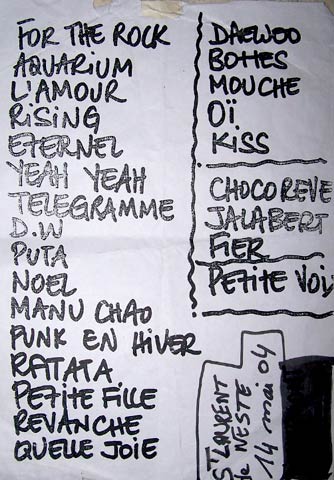 FOR THE ROCK
AQUARIUM
L'AMOUR
RISING
ETERNEL
YEAH YEAH
TELEGRAMME
D.W
PUTA
NOEL
MANU CHAO
PUNK EN HIVER
RATATA
PETITE FILLE
REVANCHE
QUELLE JOIE
DAEWOO
BOTTES
MOUCHE
OÏ
KISS
CHOCOREVE
JALABERT
FIER
PETITE VOL
ST LAURENT
de NESTE
14 mai 04